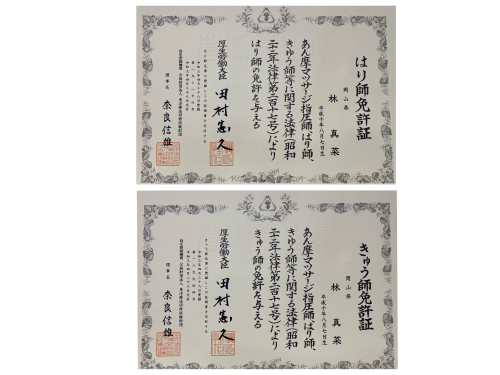 はり師免許証
岡山県
林真菜
平成十年八月七日生
あん摩マッサージ指圧師、はり師、
きゅう師等に関する法律(昭和
二十二年法律第二百十七号)により
はり師の免許を与える
厚生労働大臣 田村憲久
理事長 奈良信雄
きゅう師免許証
岡山県
林真菜
平成十年八月七日生
あん摩マッサージ指圧師、はり師、
きゅう師等に関する法律(昭和
二十二年法律第二百十七号)により
きゅう師の免許を与える
厚生労働大臣 田村憲久
理事長 奈良信雄